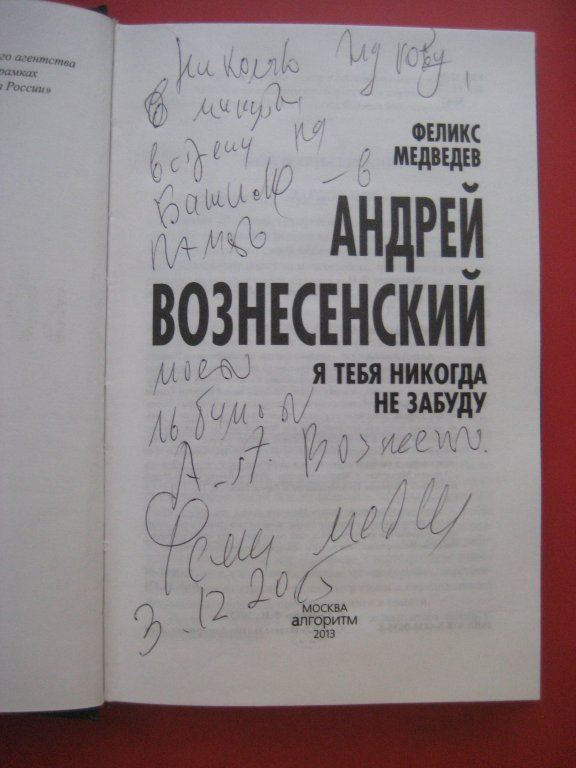 го агентства
рамках
а России»
Николаю
в минуты
встречи на
в
память
ФЕЛИКС
МЕДВЕДЕВ
АНДРЕЙ
ВОЗНЕСЕНСКИЙ
Я ТЕБЯ НИКОГДА
НЕ ЗАБУДУ
моей
любимой
А. А. Вознесен.
Феликс Медведев
3.12.2013
МОСКВА
алгоритм
2013